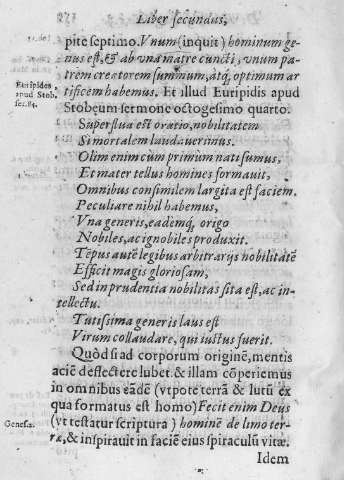 Liber secundus,
pite septimo. Vnum (inquit) hominum ge-
nus est, & ab vna matre cuncti, vnum pa-
trem creatorem summum, atq́, optimum ar-
tificem habemus. Et illud Euripidis apud
Euripides
apud Stob.
ser. 84.
Stobeum sermone octogesimo quarto.
Superflua est oratio, nobilitatem
Si mortalem laudauerimus.
Olim enim cum primum nati sumus,
Et mater tellus homines formauit,
Omnibus consimilem largita est faciem.
Peculiare nihil habemus,
Vna generis, eademq́, origo
Nobiles, ac ignobiles produxit.
Tẽpus autẽ legibus arbitrarijs nobilitatẽ
Efficit magis gloriosam,
Sed in prudentia nobilitas sita est, ac in-
tellectu.
Tutissima generis laus est
Virum collaudare, qui iustus fuerit.
Quòd si ad corporum originẽ, mentis
aciẽ deflectere lubet & illam cõperiemus
in omnibus eãdẽ (vtpote terrã & lutũ ex
qua formatus est homo) Fecit enim Deus
Genes.
(vt testatur scriptura) hominẽ de limo ter-
ræ, & inspirauit in faciẽ eius spiraculũ vitæ.
Idem